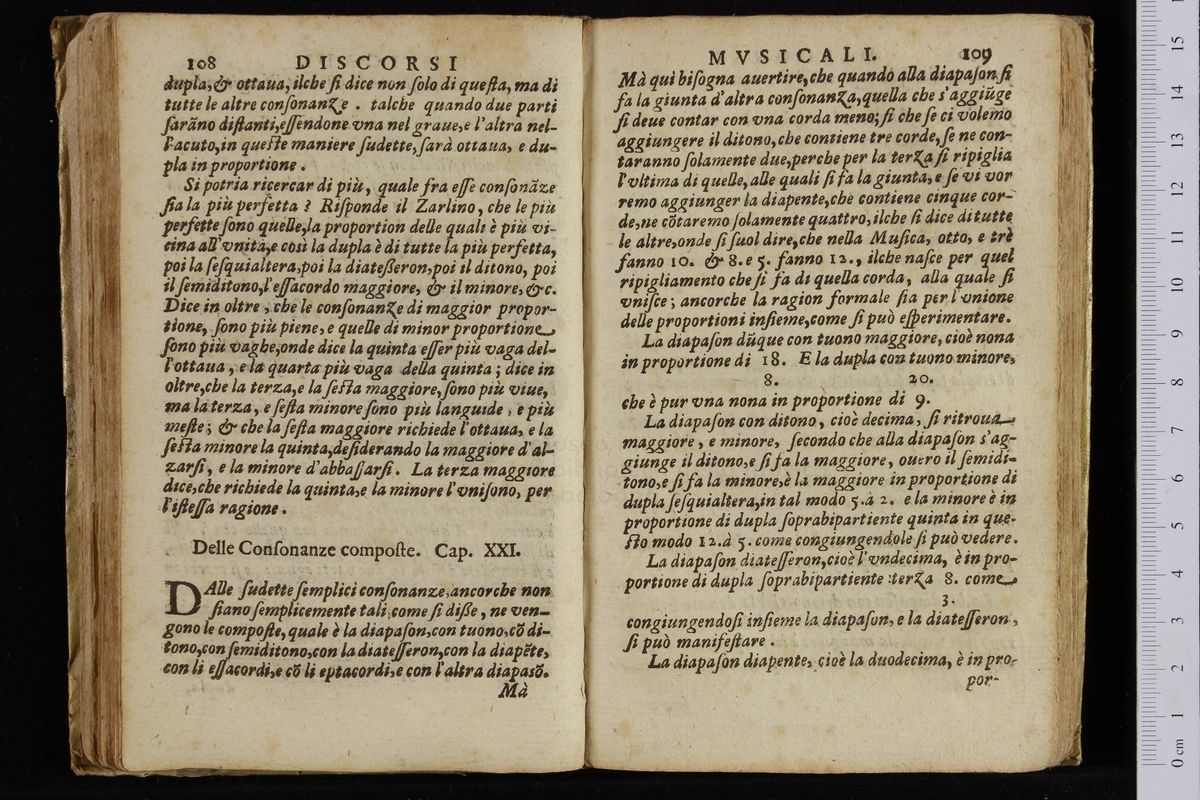 108 DISCORSI
dupla, & ottaua, ilche ſi dice non ſolo di queſta, ma di
tutte le altre conſonanze . talche quando due parti
ſarãno diſtanti, eſſendone vna nel graue, e l'altra nel-
l'acuto, in queſte maniere ſudette, ſarà ottaua, e du-
pla in proportione .
Si potria ricercar di più, quale fra eſſe conſonãze
ſia la più perfetta ? Riſponde il Zarlino, che le più
perfette ſono quelle, la proportion delle quali è più vi-
cina all'vnità, e così la dupla è di tutte la più perfetta,
poi la ſeſquialtera, poi la diateßeron, poi il ditono, poi
il ſemiditono, l'eſſacordo maggiore, & il minore, &c.
Dice in oltre, che le conſonanze di maggior propor-
tione, ſono più piene, e quelle di minor proportione
ſono più vaghe, onde dice la quinta eſſer più vaga del-
l'ottaua, e la quarta più vaga della quinta ; dice in
oltre, che la terza, e la ſeſta maggiore, ſono più viue,
ma la terza, e ſeſta minore ſono più languide, e più
meſte ; & che la ſeſta maggiore richiede l'ottaua, e la
ſeſta minore la quinta, deſiderando la maggiore d'al-
zarſi, e la minore d'abbaſſarſi. La terza maggiore
dice, che richiede la quinta, e la minore l'vniſono, per
l'iſteſſa ragione .
Delle Conſonanze compoſte. Cap. XXI.
DAlle ſudette ſemplici conſonanze, ancorche non
ſiano ſemplicemente tali, come ſi diße, ne ven-
gono le compoſte, quale è la diapaſon, con tuono, cõ di-
tono, con ſemiditono, con la diateſſeron, con la diapẽte,
con li eſſacordi, e cõ li eptacordi, e con l'altra diapasõ.
Mà
MVSICALI. 109
Mà quì biſogna auertire, che quando alla diapaſon ſi
fa la giunta d'altra conſonanza, quella che s'aggiũge
ſi deue contar con vna corda meno; ſi che ſe ci volemo
aggiungere il ditono, che contiene tre corde, ſe ne con-
taranno ſolamente due, perche per la terza ſi ripiglia
l'vltima di quelle, alle quali ſi fa la giunta, e ſe vi vor
remo aggiunger la diapente, che contiene cinque cor-
de, ne cõtaremo ſolamente quattro, ilche ſi dice di tutte
le altre, onde ſi ſuol dire, che nella Muſica, otto, e trè
fanno 10. & 8. e 5. fanno 12., ilche naſce per quel
ripigliamento che ſi fa di quella corda, alla quale ſi
vniſce ; ancorche la ragion formale ſia per l'vnione
delle proportioni inſieme, come ſi può eſperimentare.
La diapaſon dũque con tuono maggiore, cioè nona
in proportione di 18. E la dupla con tuono minore,
8. 20.
che è pur vna nona in proportione di 9.
La diapaſon con ditono, cioè decima, ſi ritroua
maggiore, e minore, ſecondo che alla diapaſon s'ag-
giunge il ditono, e ſi fa la maggiore, ouero il ſemidi-
tono, e ſi fa la minore, è la maggiore in proportione di
dupla ſeſquialtera, in tal modo 5. à 2. e la minore è in
proportione di dupla ſoprabipartiente quinta in que-
ſto modo 12. à 5. come congiungendole ſi può vedere.
La diapaſon diateſſeron, cioè l'vndecima, è in pro-
portione di dupla ſoprabipartiente terza 8. come
3.
congiungendoſi inſieme la diapaſon, e la diateſſeron,
ſi può manifeſtare .
La diapaſon diapente, cioè la duodecima, è in pro-
por-
0 cm 1 2 3 4 5 6 7 8 9 10 11 12 13 14 15